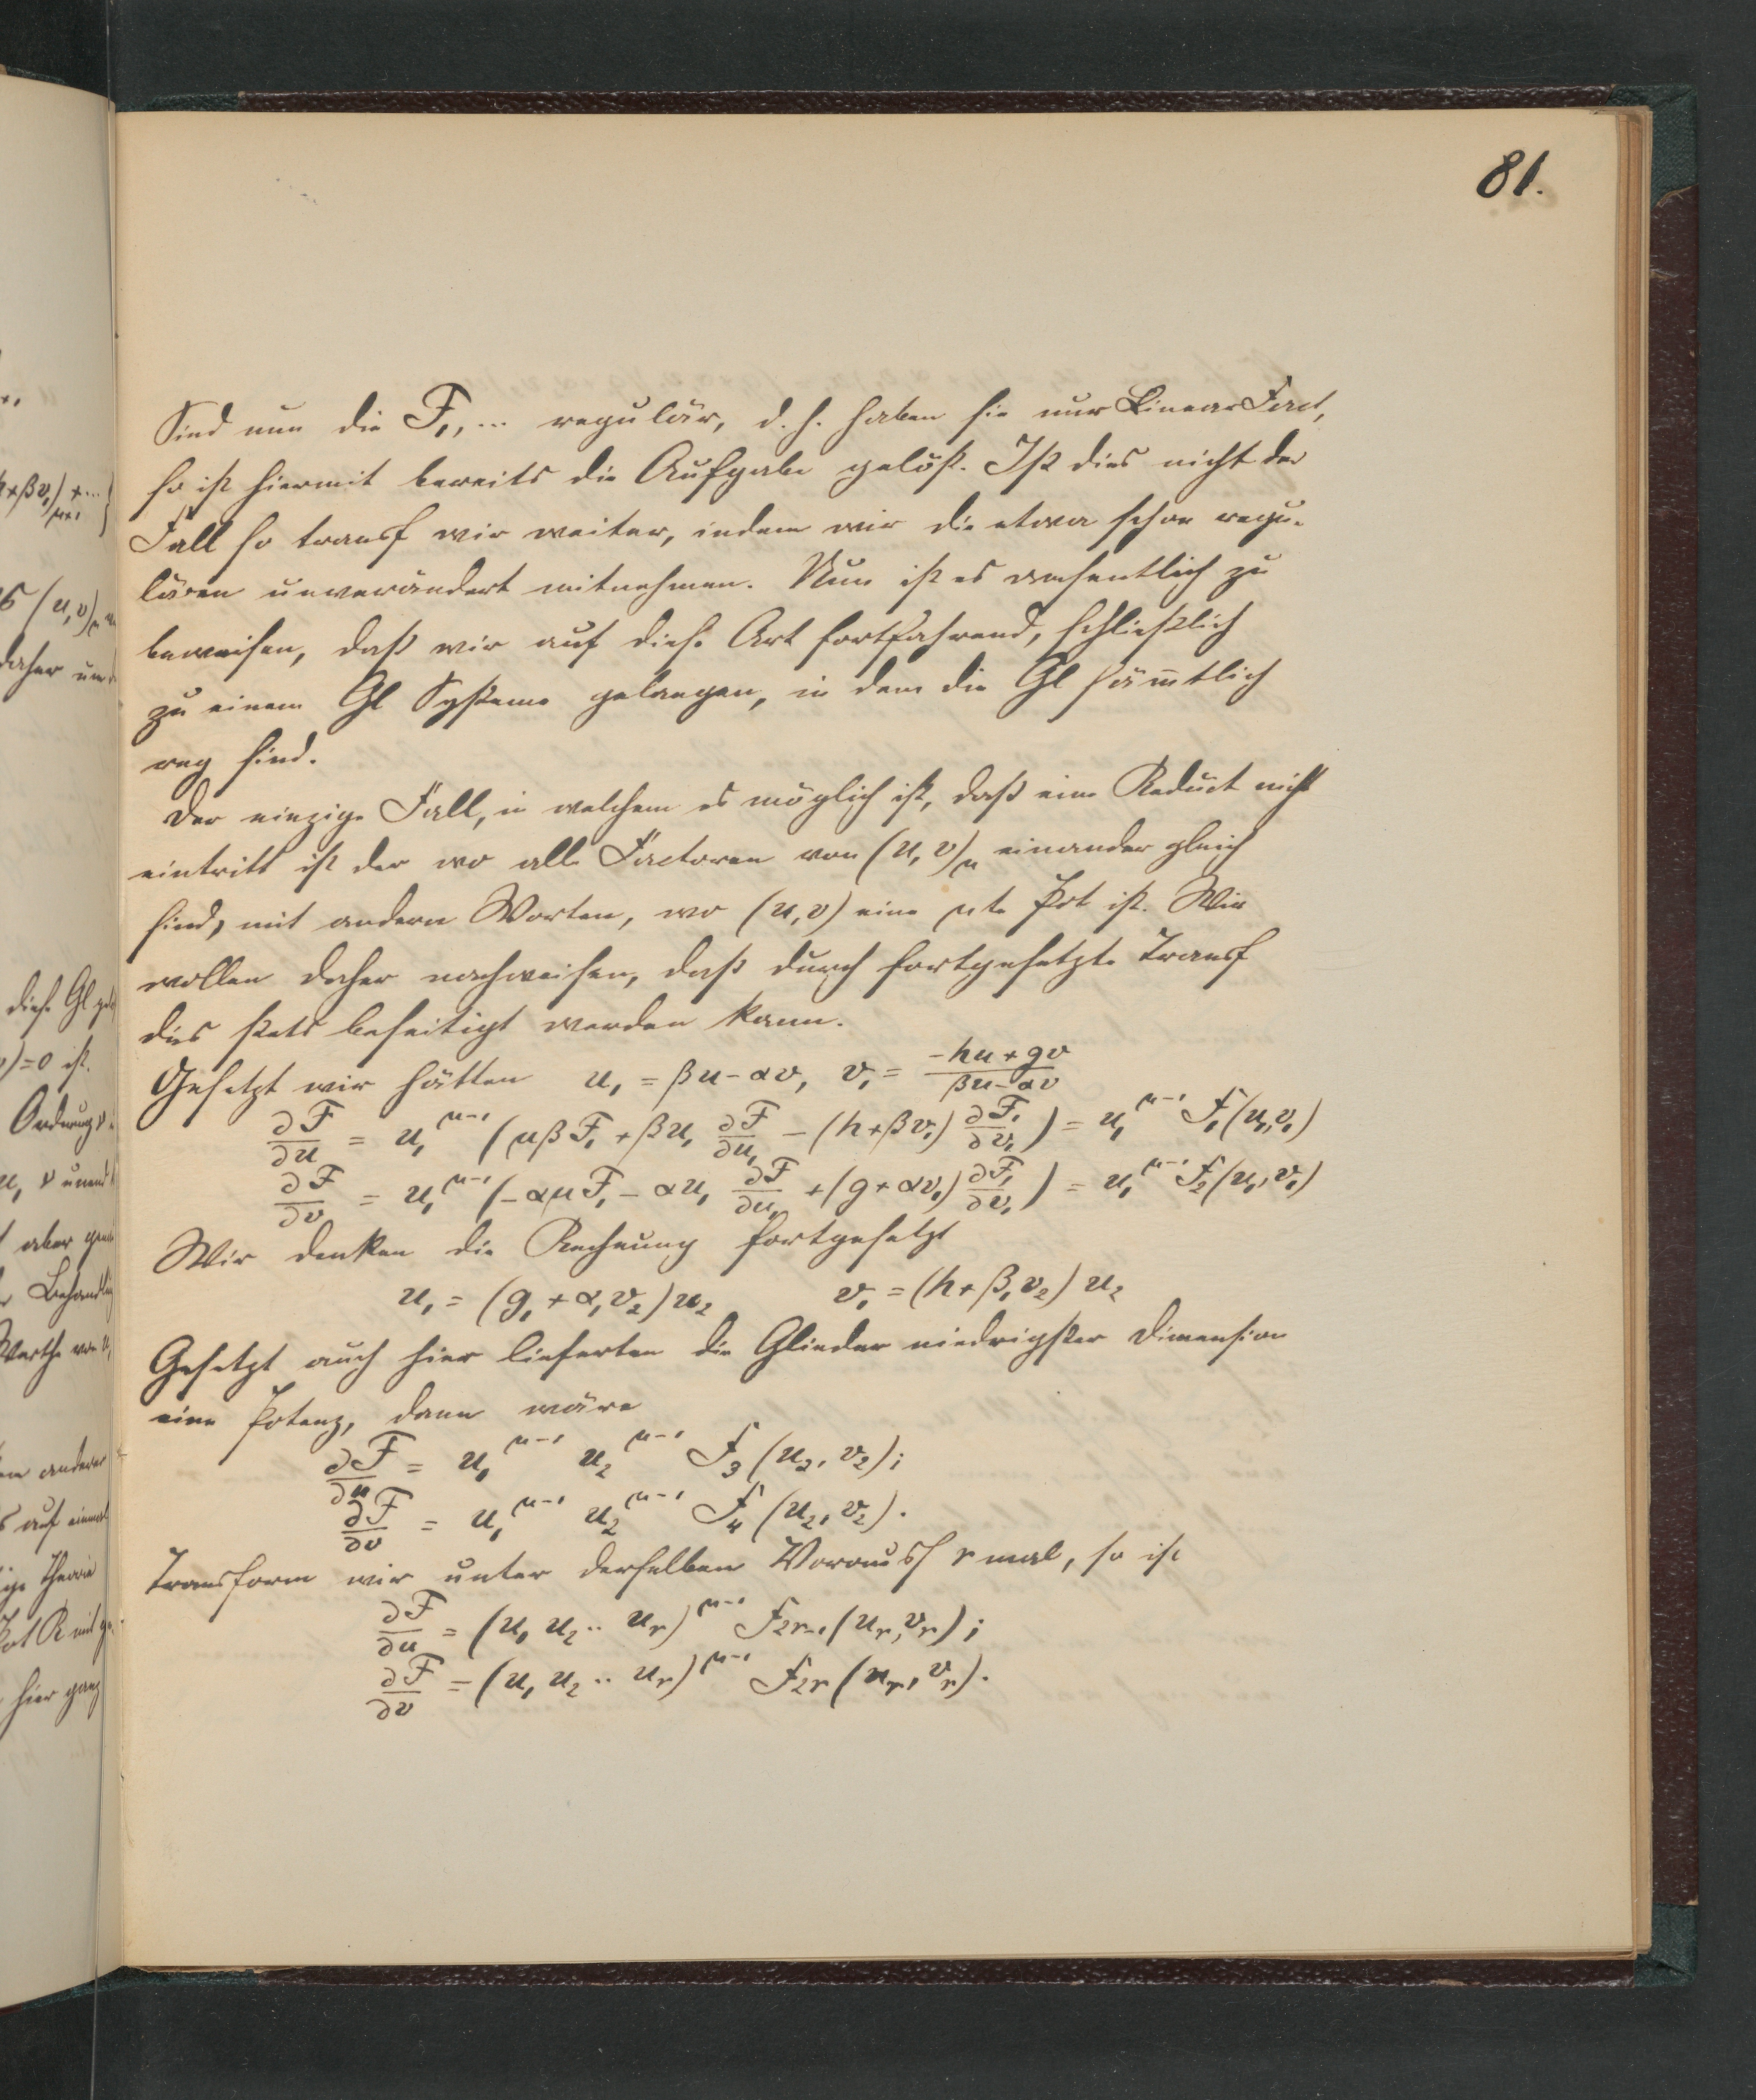 81.
Sind nun die F₁, ... regulär, d. h. haben sie nur Linear Fact,
so ist hiermit bereits die Aufgabe gelöst. Ist dies nicht der
Fall so transf wir weiter, indem wir die etwa schon regu-
lären unverändert mitnehmen. Nun ist es wesentlich zu
beweisen, daß wir auf diese Art fortfahrend, schließlich
zu einem Gl Systeme gelangen, in dem die Gl säm̄tlich
reg sind.
Der einzige Fall, in welchem es möglich ist, daß eine Reduct nicht
eintritt ist der wo alle Factoren von (u, v)_μ einander gleich
sind, mit andern Worten, wo (u, v) eine μte Pot ist. Wir
wollen daher nachweisen, daß durch fortgesetzte Transf
dies stets beseitigt werden kann.
Gesetzt wir hätten u₁ = βu - αv, v₁ = (-hu + gv)/(βu - αv)
∂F/∂u = u₁^{μ-1} (μβF₁ + βu₁ ∂F/∂u₁ - (h + βv₁) ∂F₁/∂v₁) = u₁^{μ-1} F₁(u₁, v₁)
∂F/∂v = u₁^{μ-1} (-αμF₁ - αu₁ ∂F/∂u₁ + (g + αv₁) ∂F₁/∂v₁) = u₁^{μ-1} F₂(u₁, v₁)
Wir denken die Rechnung fortgesetzt
u₁ = (g₁ + α₁v₂)u₂ v₁ = (h + β₁v₂) u₂
Gesetzt auch hier lieferten die Glieder niedrigster Dimension
eine Potenz, dann wäre
∂F/∂u = u₁^{μ-1} u₂^{μ-1} F₃ (u₂, v₂);
∂F/∂v = u₁^{μ-1} u₂^{μ-1} F₄ (u₂, v₂).
Transform wir unter derselben Vorauss r mal, so ist
∂F/∂u = (u₁ u₂ .. u_r)^{μ-1} F_{2r-1} (u_r, v_r);
∂F/∂v = (u₁ u₂ .. u_r)^{μ-1} F_{2r} (u_r, v_r).